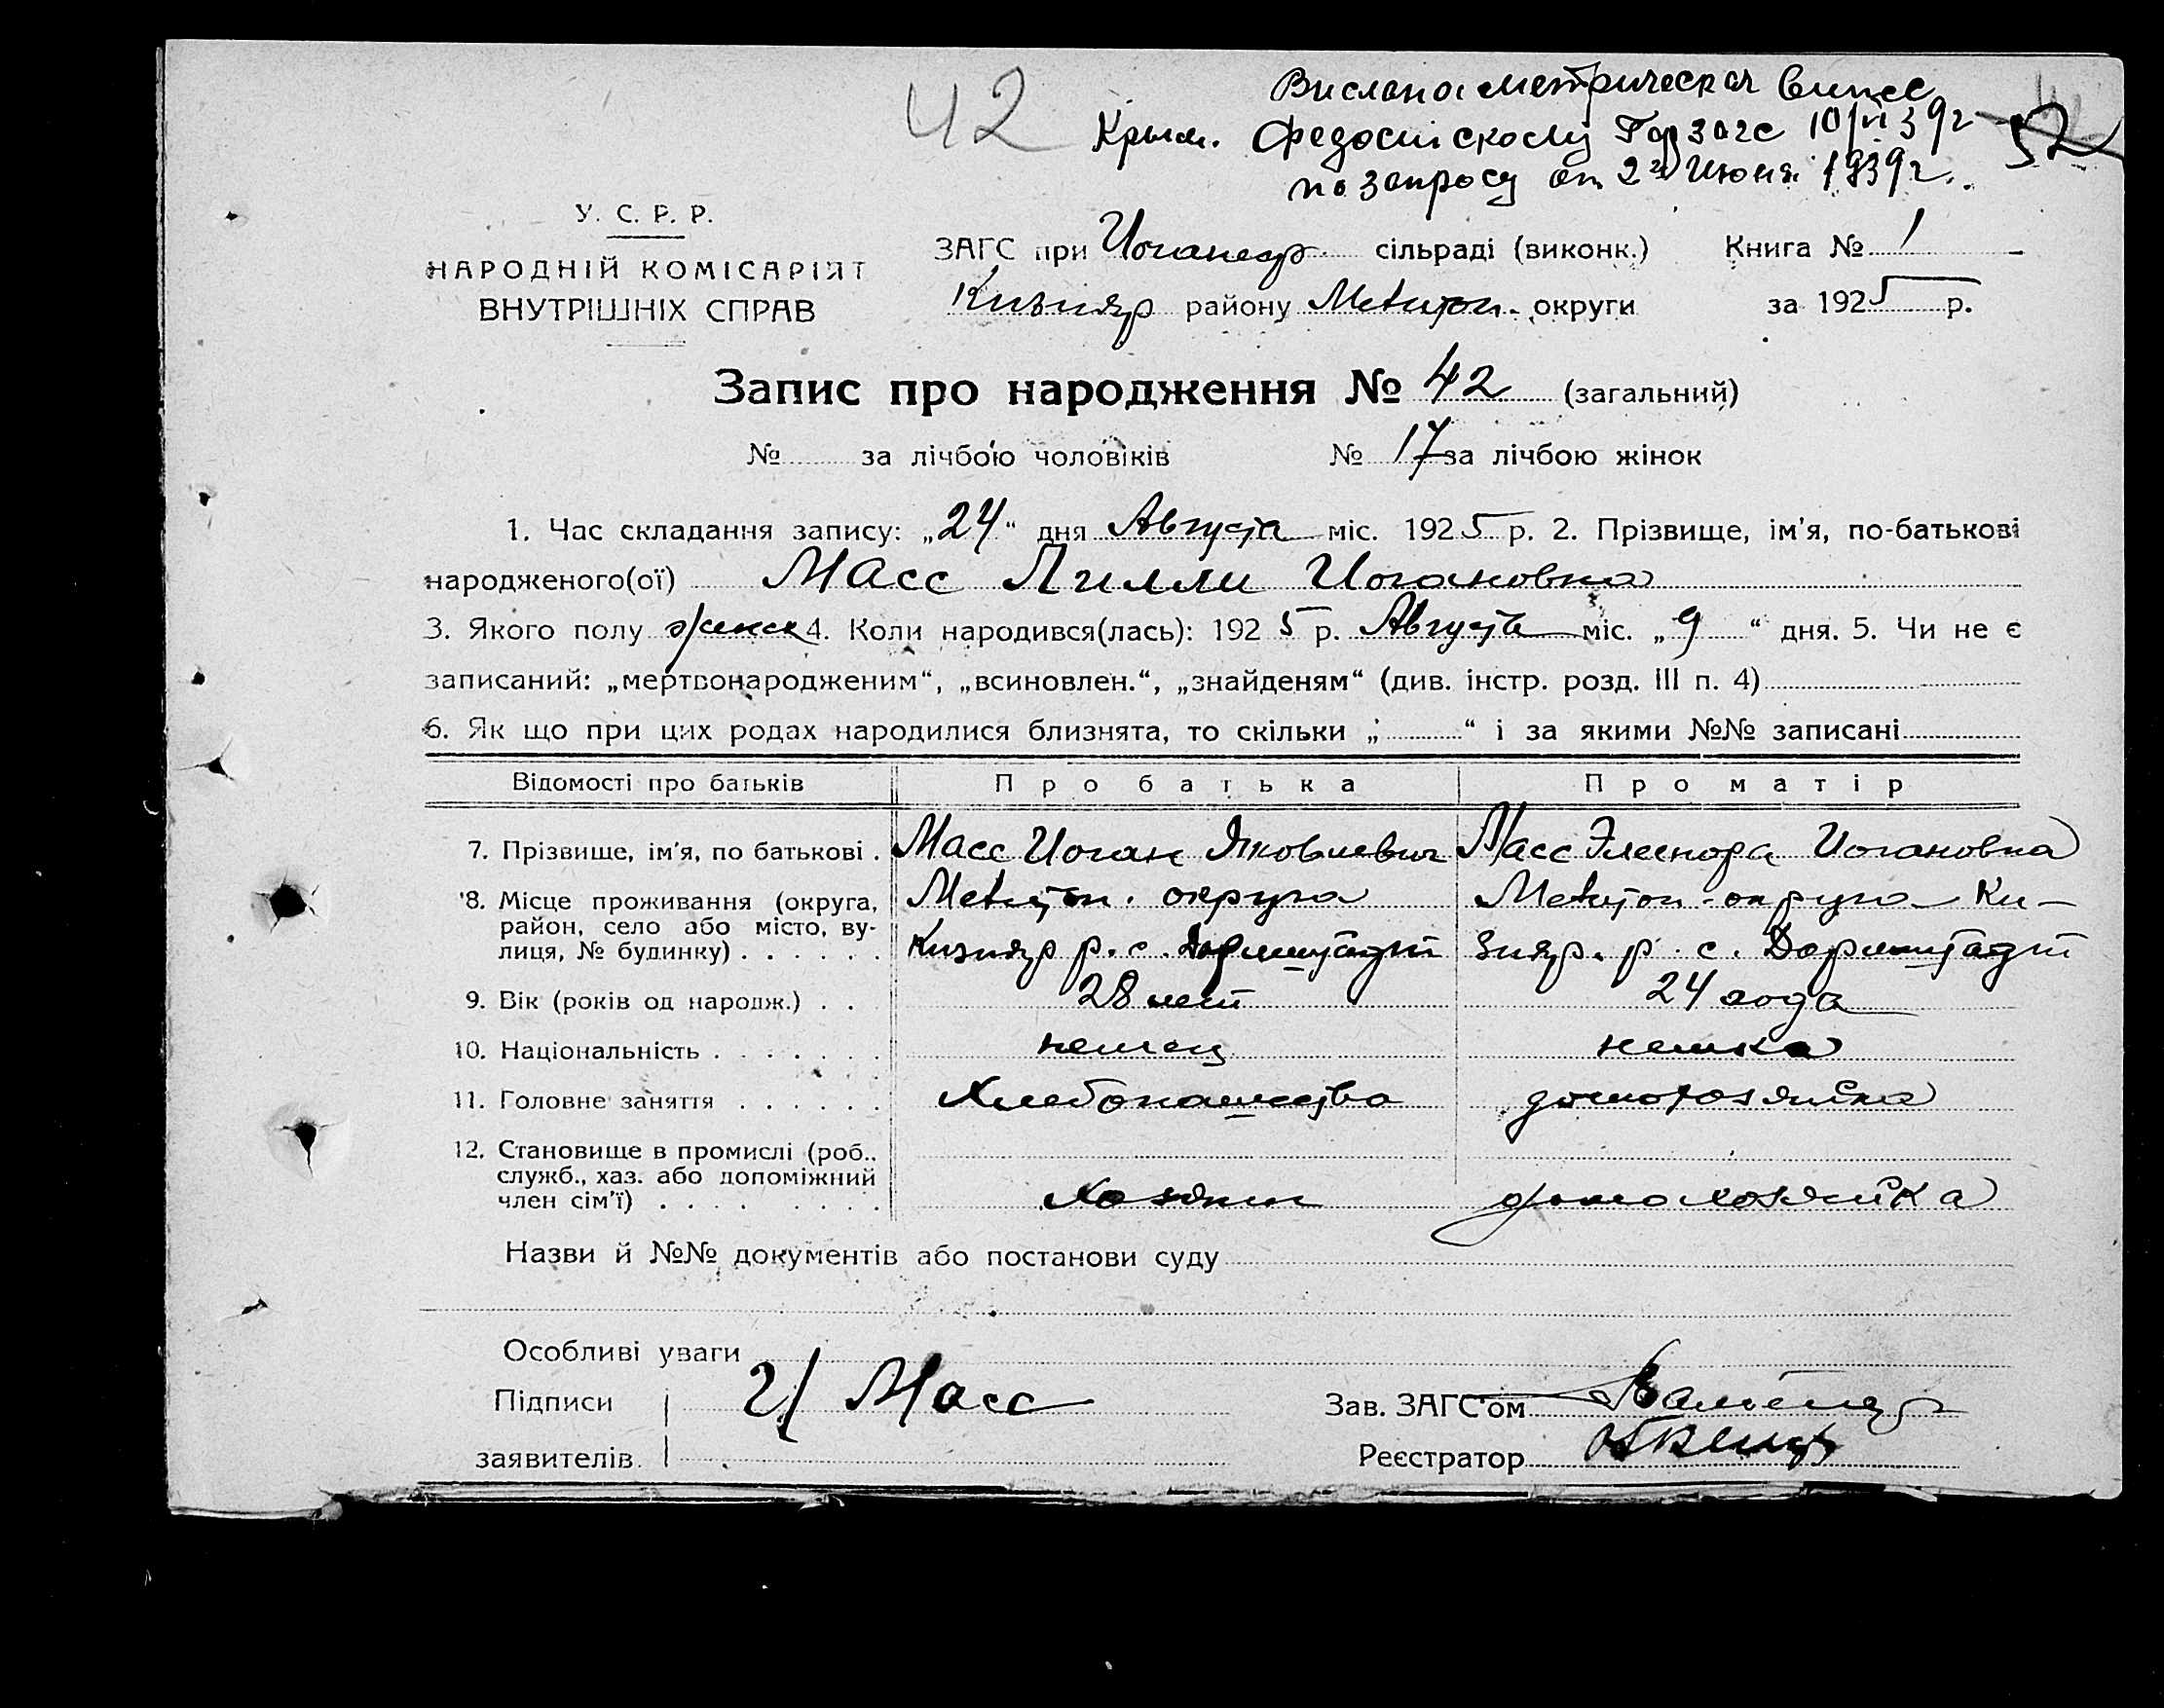 42
Выслана метрическая випис
Крым. Федосийскому Горзагс 10/VI 39г 52
по запросу от 2го Июня 1939г.
У. С. Р. Р.
НАРОДНІЙ КОМІСАРІЯТ
ВНУТРІШНІХ СПРАВ
ЗАГС при сільраді (виконк.) Книга № 1
Кизияр району Мелитоп. округи за 1925 р.
Запис про народження № 42 (загальний)
№ за лічбою чоловіків № 17 за лічбою жінок
1. Час складання запису: „24“ дня Августа міс. 1925 р. 2. Прізвище, ім'я, по-батькові
народженого(ої) Масс Лилли Иогановна
3. Якого полу женск 4. Коли народився(лась): 1925 р. Августа міс. „9“ дня. 5. Чи не є
записаний: „мертвонародженим“, „всиновлен.“, „знайденям“ (див. інстр. розд. III п. 4)
6. Як що при цих родах народилися близнята, то скільки „ “ і за якими №№ записані
Відомості про батьків Про батька Про матір
7. Прізвище, ім'я, по батькові . Масс Иоган Яковлевич Масс Элеонора Иогановна
8. Місце проживання (округа, Мелитоп. округа Мелитоп. округа Ки-
район, село або місто, ву-
лиця, № будинку) . . . . . . Кизияр р. с. Дармштадт зияр. р. с. Дармштадт
9. Вік (років од народж.) . . 28 лет 24 года
10. Національність . . . . . . . немец немка
11. Головне заняття . . . . . . Хлебопашество домохозяйка
12. Становище в промислі (роб.,
служб., хаз. або допоміжний
член сім'ї) . . . . . . . . хозяин домохозяйка
Назви й №№ документів або постанови суду
Особливі уваги
Підписи И Масс Зав. ЗАГС'ом
заявителів. Реєстратор